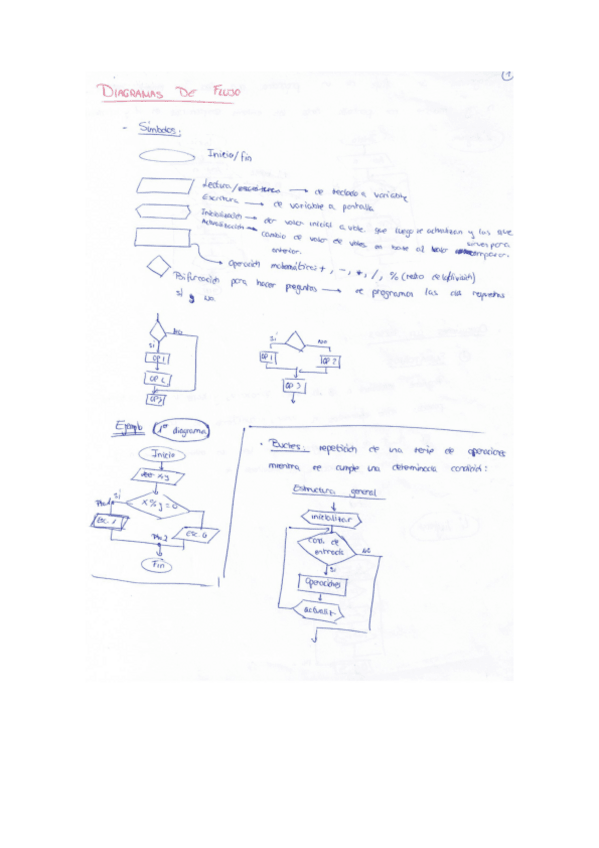 1
DIAGRAMAS DE FLUJO
- Símbolos:
Inicio/fin
Lectura/ → de teclado a variable
Escritura → de variable a pantalla
Inicialización → dar valor inicial a vble. que luego se actualizan y las que
Actualización → cambio de valor de vbles en base al valor sirven para
anterior. comparar.
→ Operación matemática: +, -, *, /, % (resto de la división)
Bifurcación para hacer preguntas → se programan las dos respuestas
sí y no
no
sí
OP 1
OP 2
OP 3
sí no
OP 1 OP 2
OP 3
Ejemplo (1er diagrama)
Inicio
leer x,y
sí
x % y = 0
Esc. 1
Esc. 0
Fin
• Bucles: repetición de una serie de operaciones
mientras se cumple una determinada condición:
Estructura general
inicializar
cond. de
entrada
no
sí
Operaciones
actualizar